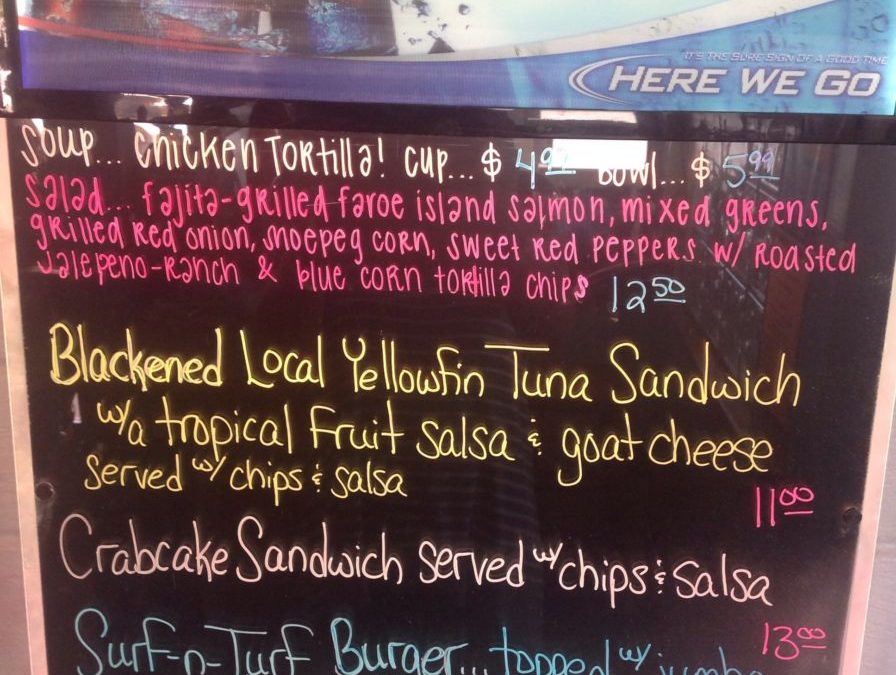 IT'S THE SURE SIGN OF A GOOD TIME
HERE WE GO
Soup... Chicken Tortilla! Cup... $ 4.99 Bowl... $ 5.99
Salad... fajita-grilled faroe island salmon, mixed greens,
grilled red onion, shoepeg corn, sweet red peppers w/ roasted
jalepeno-ranch & blue corn tortilla chips 12.50
Blackened Local Yellowfin Tuna Sandwich
w/a tropical Fruit Salsa & goat cheese
served w/ chips & salsa
11.00
Crabcake Sandwich served w/ chips & salsa
13.00
Surf-n-Turf Burger... topped w/ jumbo